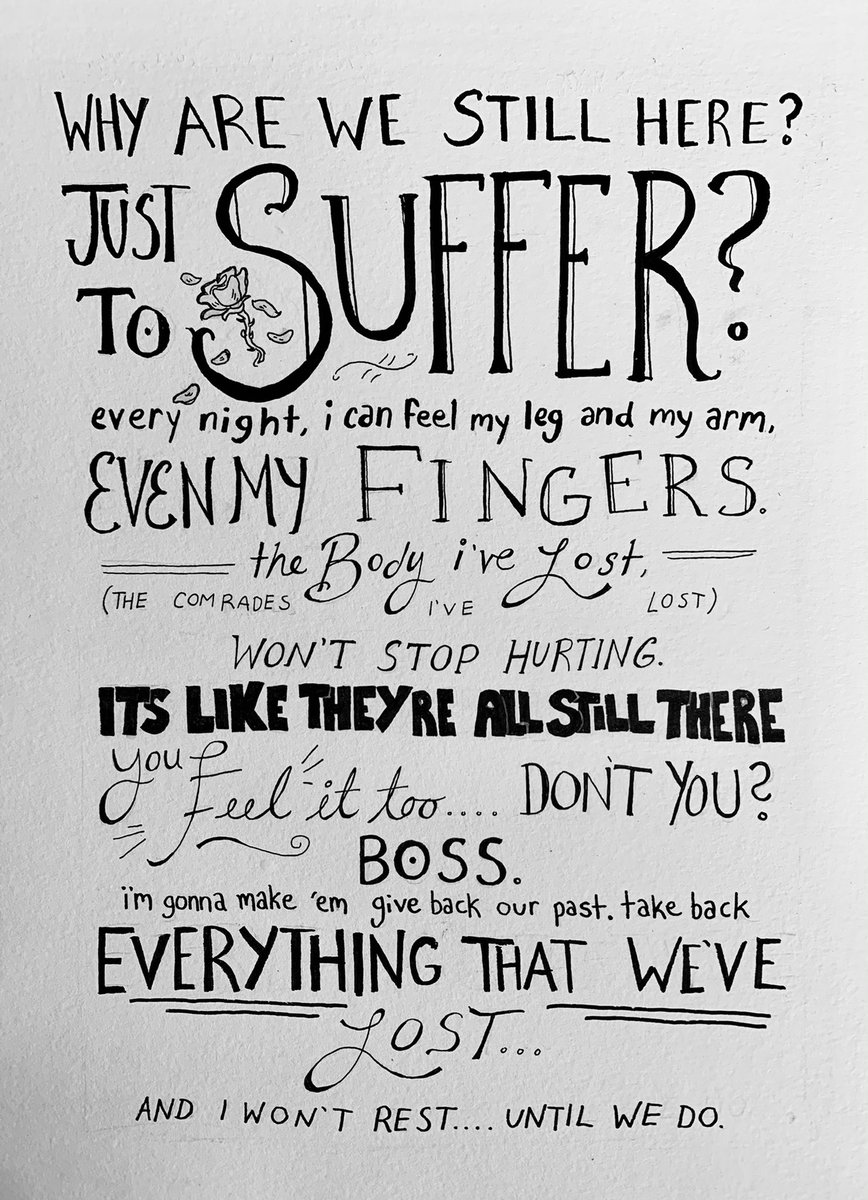 WHY ARE WE STILL HERE?
JUST TO SUFFER?
every night, i can feel my leg and my arm,
EVEN MY FINGERS.
the Body i've Lost,
(THE COMRADES I'VE LOST)
WON'T STOP HURTING.
IT'S LIKE THEY'RE ALL STILL THERE
you Feel it too.... DON'T YOU?
BOSS.
i'm gonna make 'em give back our past. take back
EVERYTHING THAT WE'VE
LOST...
AND I WON'T REST.... UNTIL WE DO.